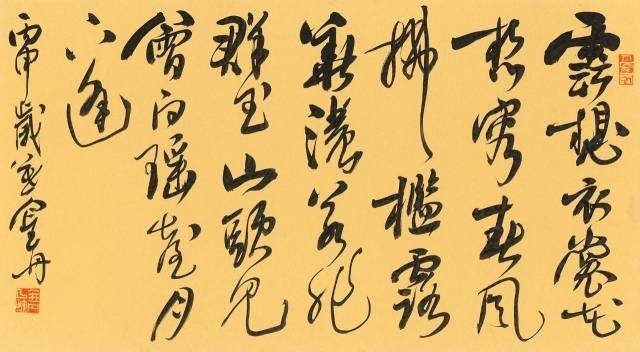 雲想衣裳花
想容春風
拂檻露
華濃若非
群玉山頭見
會向瑤臺月
下逢
丙申歲